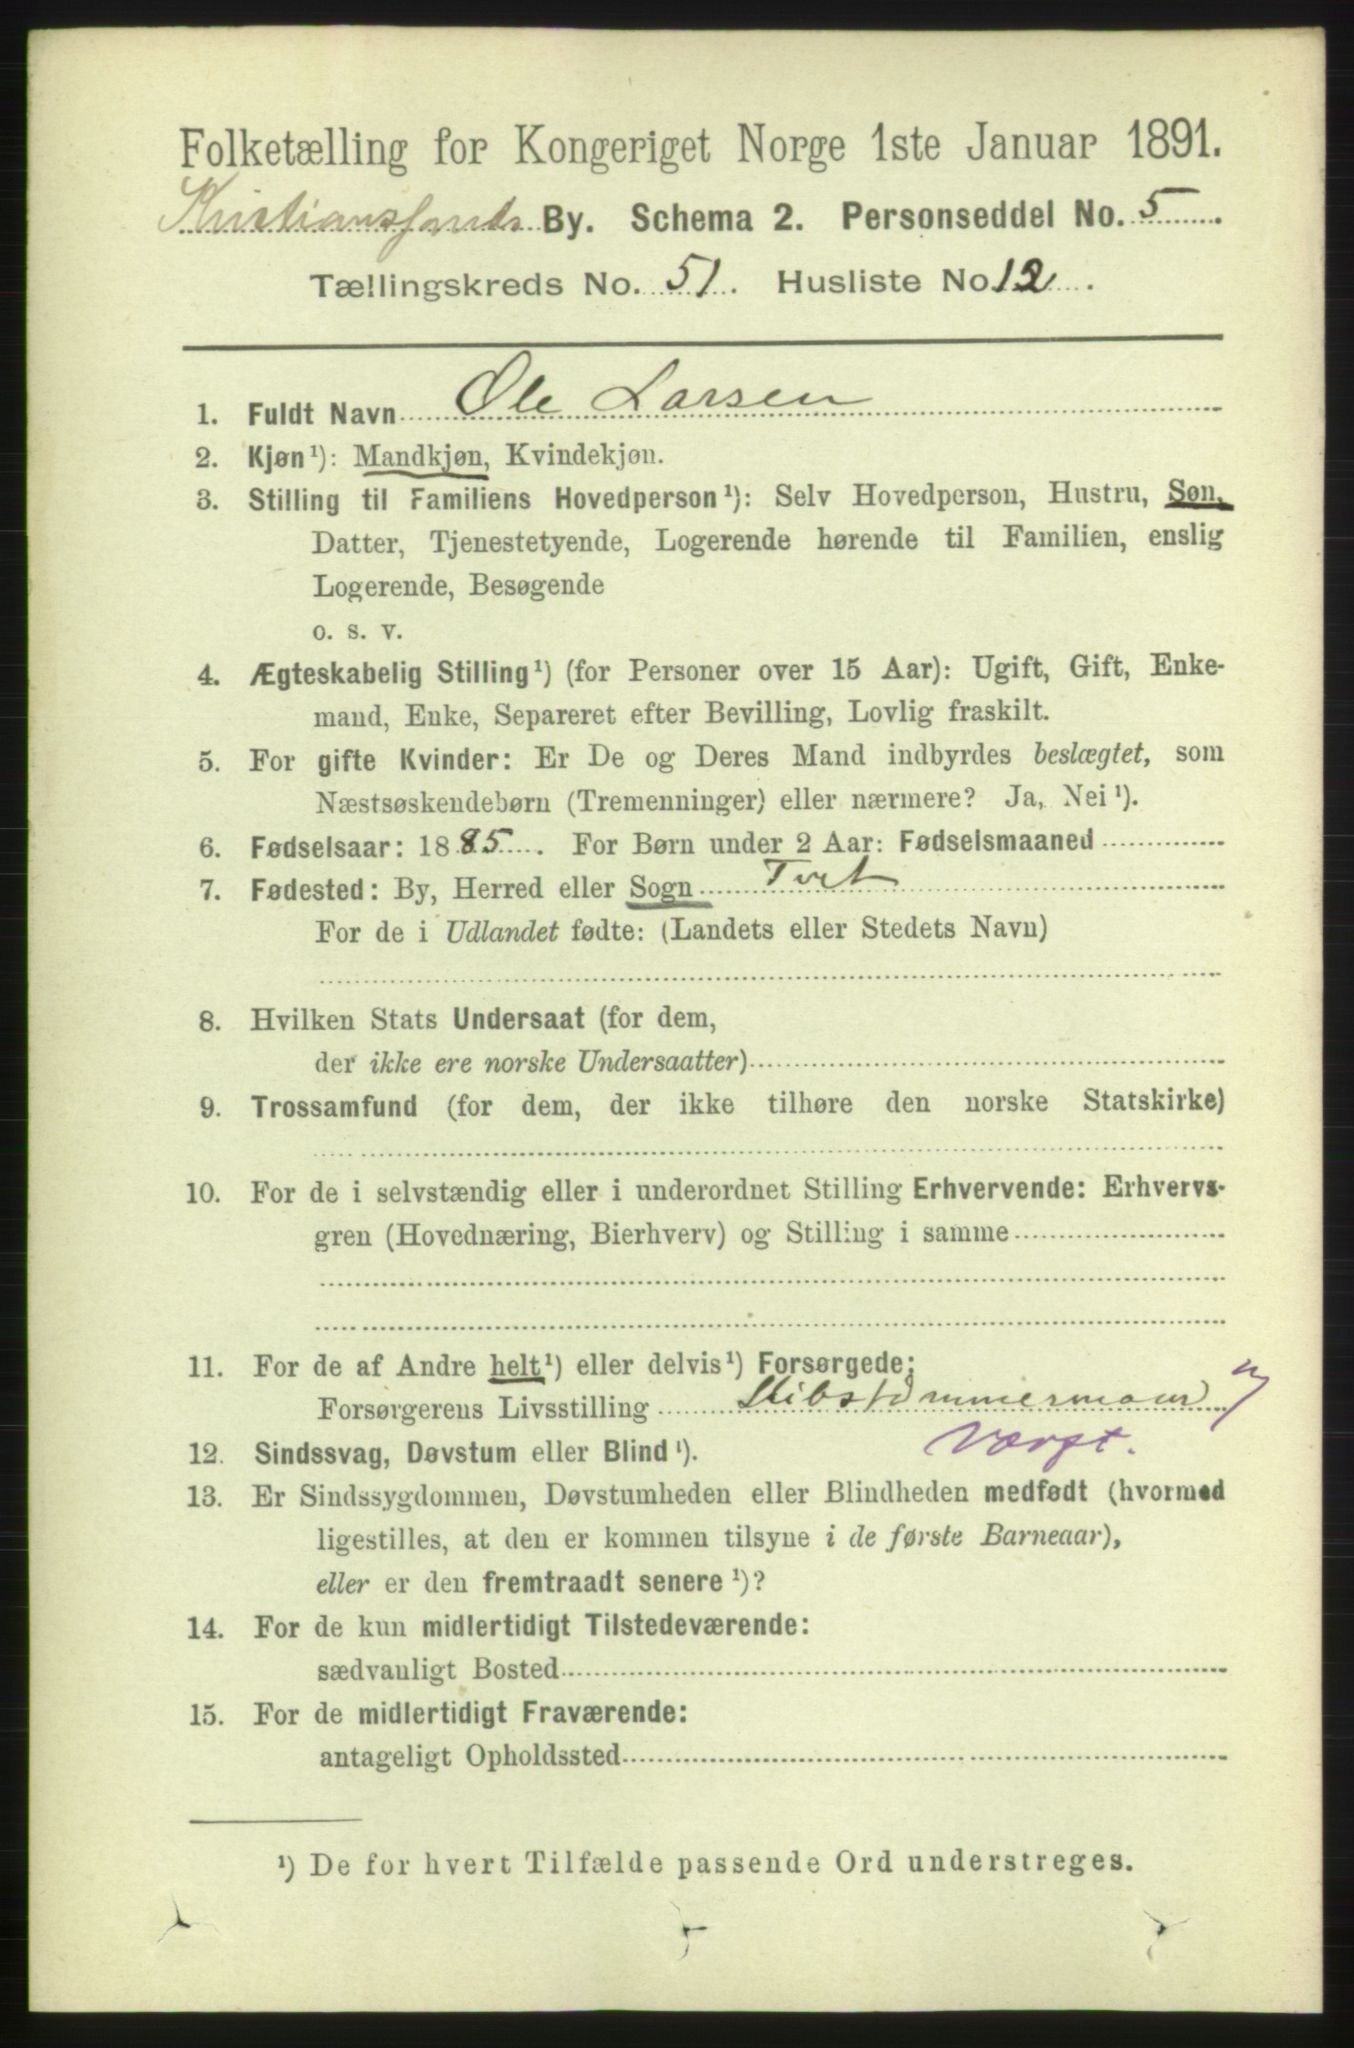 Folketælling for Kongeriget Norge 1ste Januar 1891.
Kristianssands By. Schema 2. Personseddel No. 5.
Tællingskreds No. 51. Husliste No 12.
1. Fuldt Navn Ole Larsen
2. Kjøn¹): Mandkjøn, Kvindekjøn.
3. Stilling til Familiens Hovedperson¹): Selv Hovedperson, Hustru, Søn,
Datter, Tjenestetyende, Logerende hørende til Familien, enslig
Logerende, Besøgende
o. s. v.
4. Ægteskabelig Stilling¹) (for Personer over 15 Aar): Ugift, Gift, Enke-
mand, Enke, Separeret efter Bevilling, Lovlig fraskilt.
5. For gifte Kvinder: Er De og Deres Mand indbyrdes beslægtet, som
Næstsøskendebørn (Tremenninger) eller nærmere? Ja, Nei¹).
6. Fødselsaar: 1885. For Børn under 2 Aar: Fødselsmaaned
7. Fødested: By, Herred eller Sogn Tvet
For de i Udlandet fødte: (Landets eller Stedets Navn)
8. Hvilken Stats Undersaat (for dem,
der ikke ere norske Undersaatter)
9. Trossamfund (for dem, der ikke tilhøre den norske Statskirke)
10. For de i selvstændig eller i underordnet Stilling Erhvervende: Erhvervs-
gren (Hovednæring, Bierhverv) og Stilling i samme
11. For de af Andre helt¹) eller delvis¹) Forsørgede;
Forsørgerens Livsstilling Skibstømmermand
Værft.
12. Sindssvag, Døvstum eller Blind¹).
13. Er Sindssygdommen, Døvstumheden eller Blindheden medfødt (hvormed
ligestilles, at den er kommen tilsyne i de første Barneaar),
eller er den fremtraadt senere¹)?
14. For de kun midlertidigt Tilstedeværende:
sædvanligt Bosted
15. For de midlertidigt Fraværende:
antageligt Opholdssted
¹) De for hvert Tilfælde passende Ord understreges.